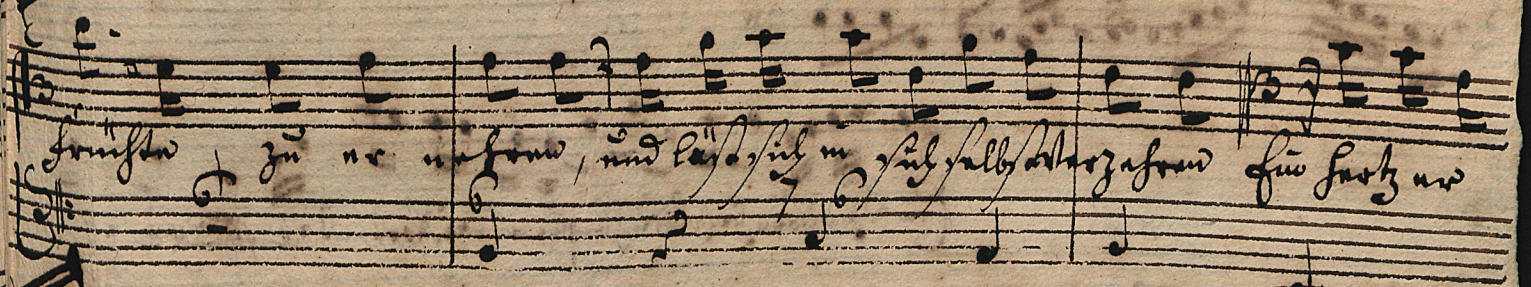 früchte, zu er nehren, und läst sich in sich selbst verzehren Ein hertz er
6
6 7 6